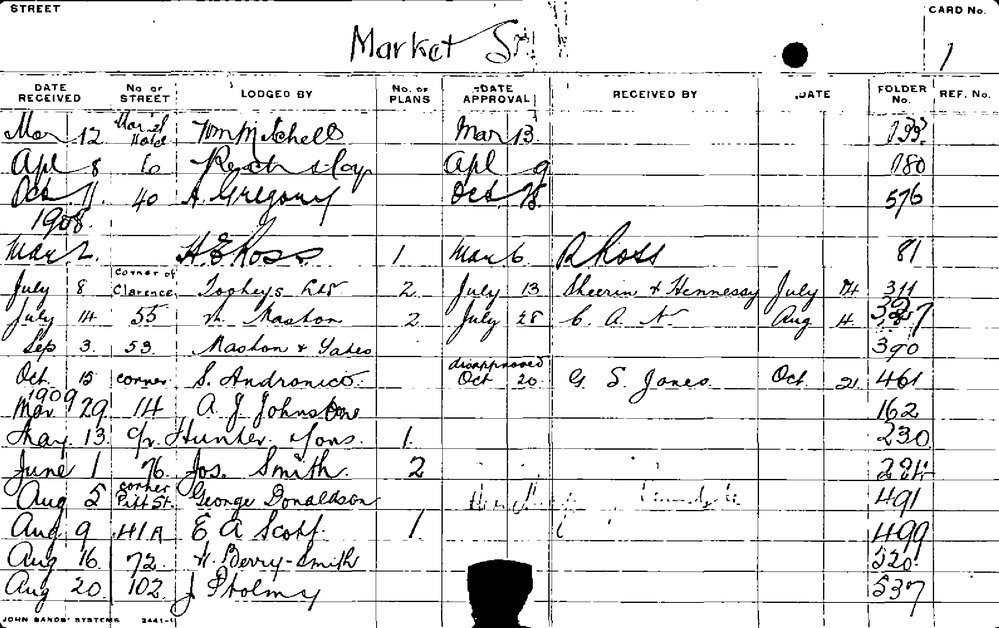 STREET CARD No.
Market St. 1
DATE RECEIVED No. OF STREET LODGED BY No. OF PLANS DATE APPROVAL RECEIVED BY DATE FOLDER No. REF. No.
Mar 12 Hotel Wm Mitchell Mar 13
Apl 8 Apl 9 180
Oct 11 40 A. Gregory Oct 576
1908
Mar 2 H E Ross 1 Mar 6 R Ross 81
July 8 corner of Clarence Tooheys Ltd 2 July 13 Sheerin & Hennessy July 311
July 14 55 Maston 2 July 28 C. A. Aug 4
Sep 3. 53. Maston & Yates 390
Oct. 15 corner S. Andronico. disapproved Oct 20 G. S. Jones Oct 21 461
1909
Mar 29 14 A. J. Johnstone 162
May 13 c/r Hunter & Sons. 1. 230
June 1 76 Jos. Smith. 2
Aug 5 corner Pitt St. George Donaldson 491
Aug 9 41A E A Scott. 1 499
Aug 16 72. Berry-Smith 520
Aug 20. 102. J 537
JOHN SANDS' SYSTEMS 2441-1